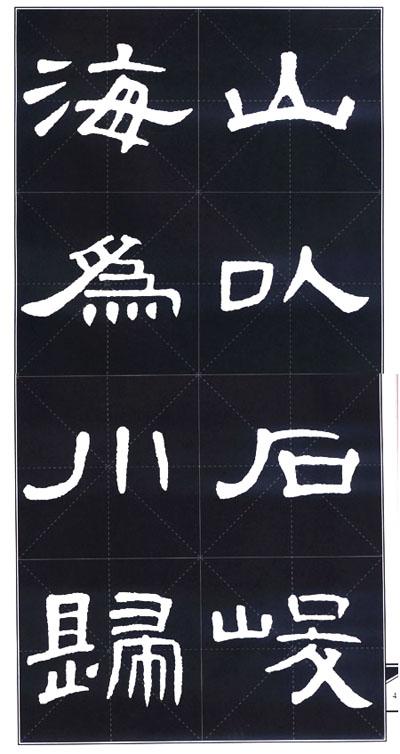 山以石峻
海為川歸
4